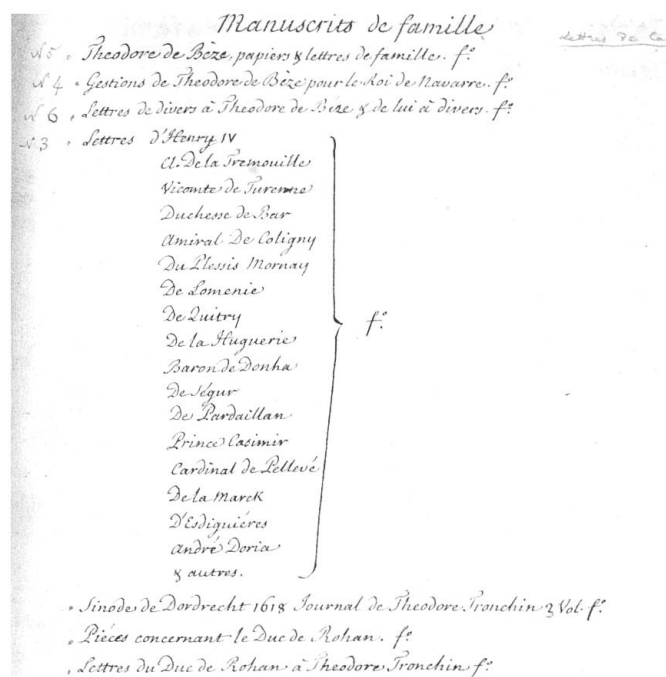 Manuscrits de famille
Lettres de la
N 5 . Theodore de Bèze, papiers & lettres de famille. fº.
N 4 . Gestions de Theodore de Bèze pour le Roi de Navarre. fº.
N 6 . Lettres de divers à Theodore de Beze & de lui à divers. fº.
N. 3 . Lettres d'Henry IV
Cl. De la Tremouille
Vicomte de Turenne
Duchesse de Bar
Amiral De Coligny
Du Plessis Mornay
De Lomenie
De Quitry
De la Huguerie
fº.
Baron de Donha
De Ségur
De Pardaillan
Prince Casimir
Cardinal de Pellevé
De la Marck
D'Esdiguiéres
André Doria
& autres.
. Sinode de Dordrecht 1618 Journal de Theodore Tronchin 3 Vol. fº.
. Piéces concernant le Duc de Rohan. fº.
. Lettres du Duc de Rohan à Theodore Tronchin fº.